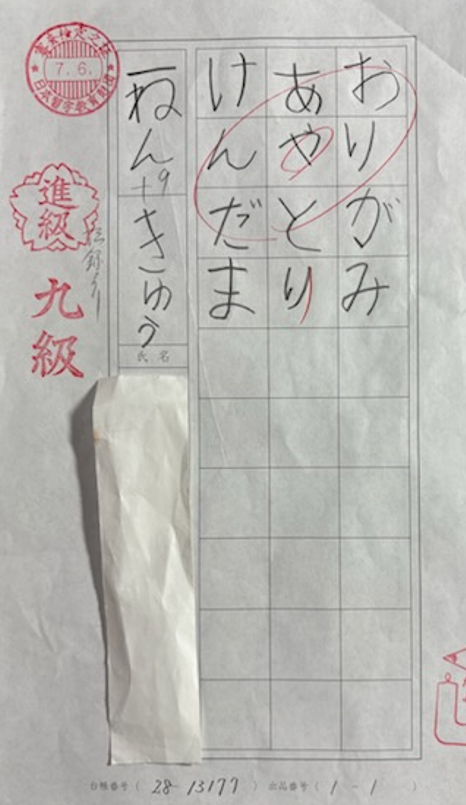 おりがみ
あやとり
けんだま
一ねん
十9きゅう
氏名
7.6.
進級
九級
台帳番号( 28-13177 ) 出品番号( 1-1 )